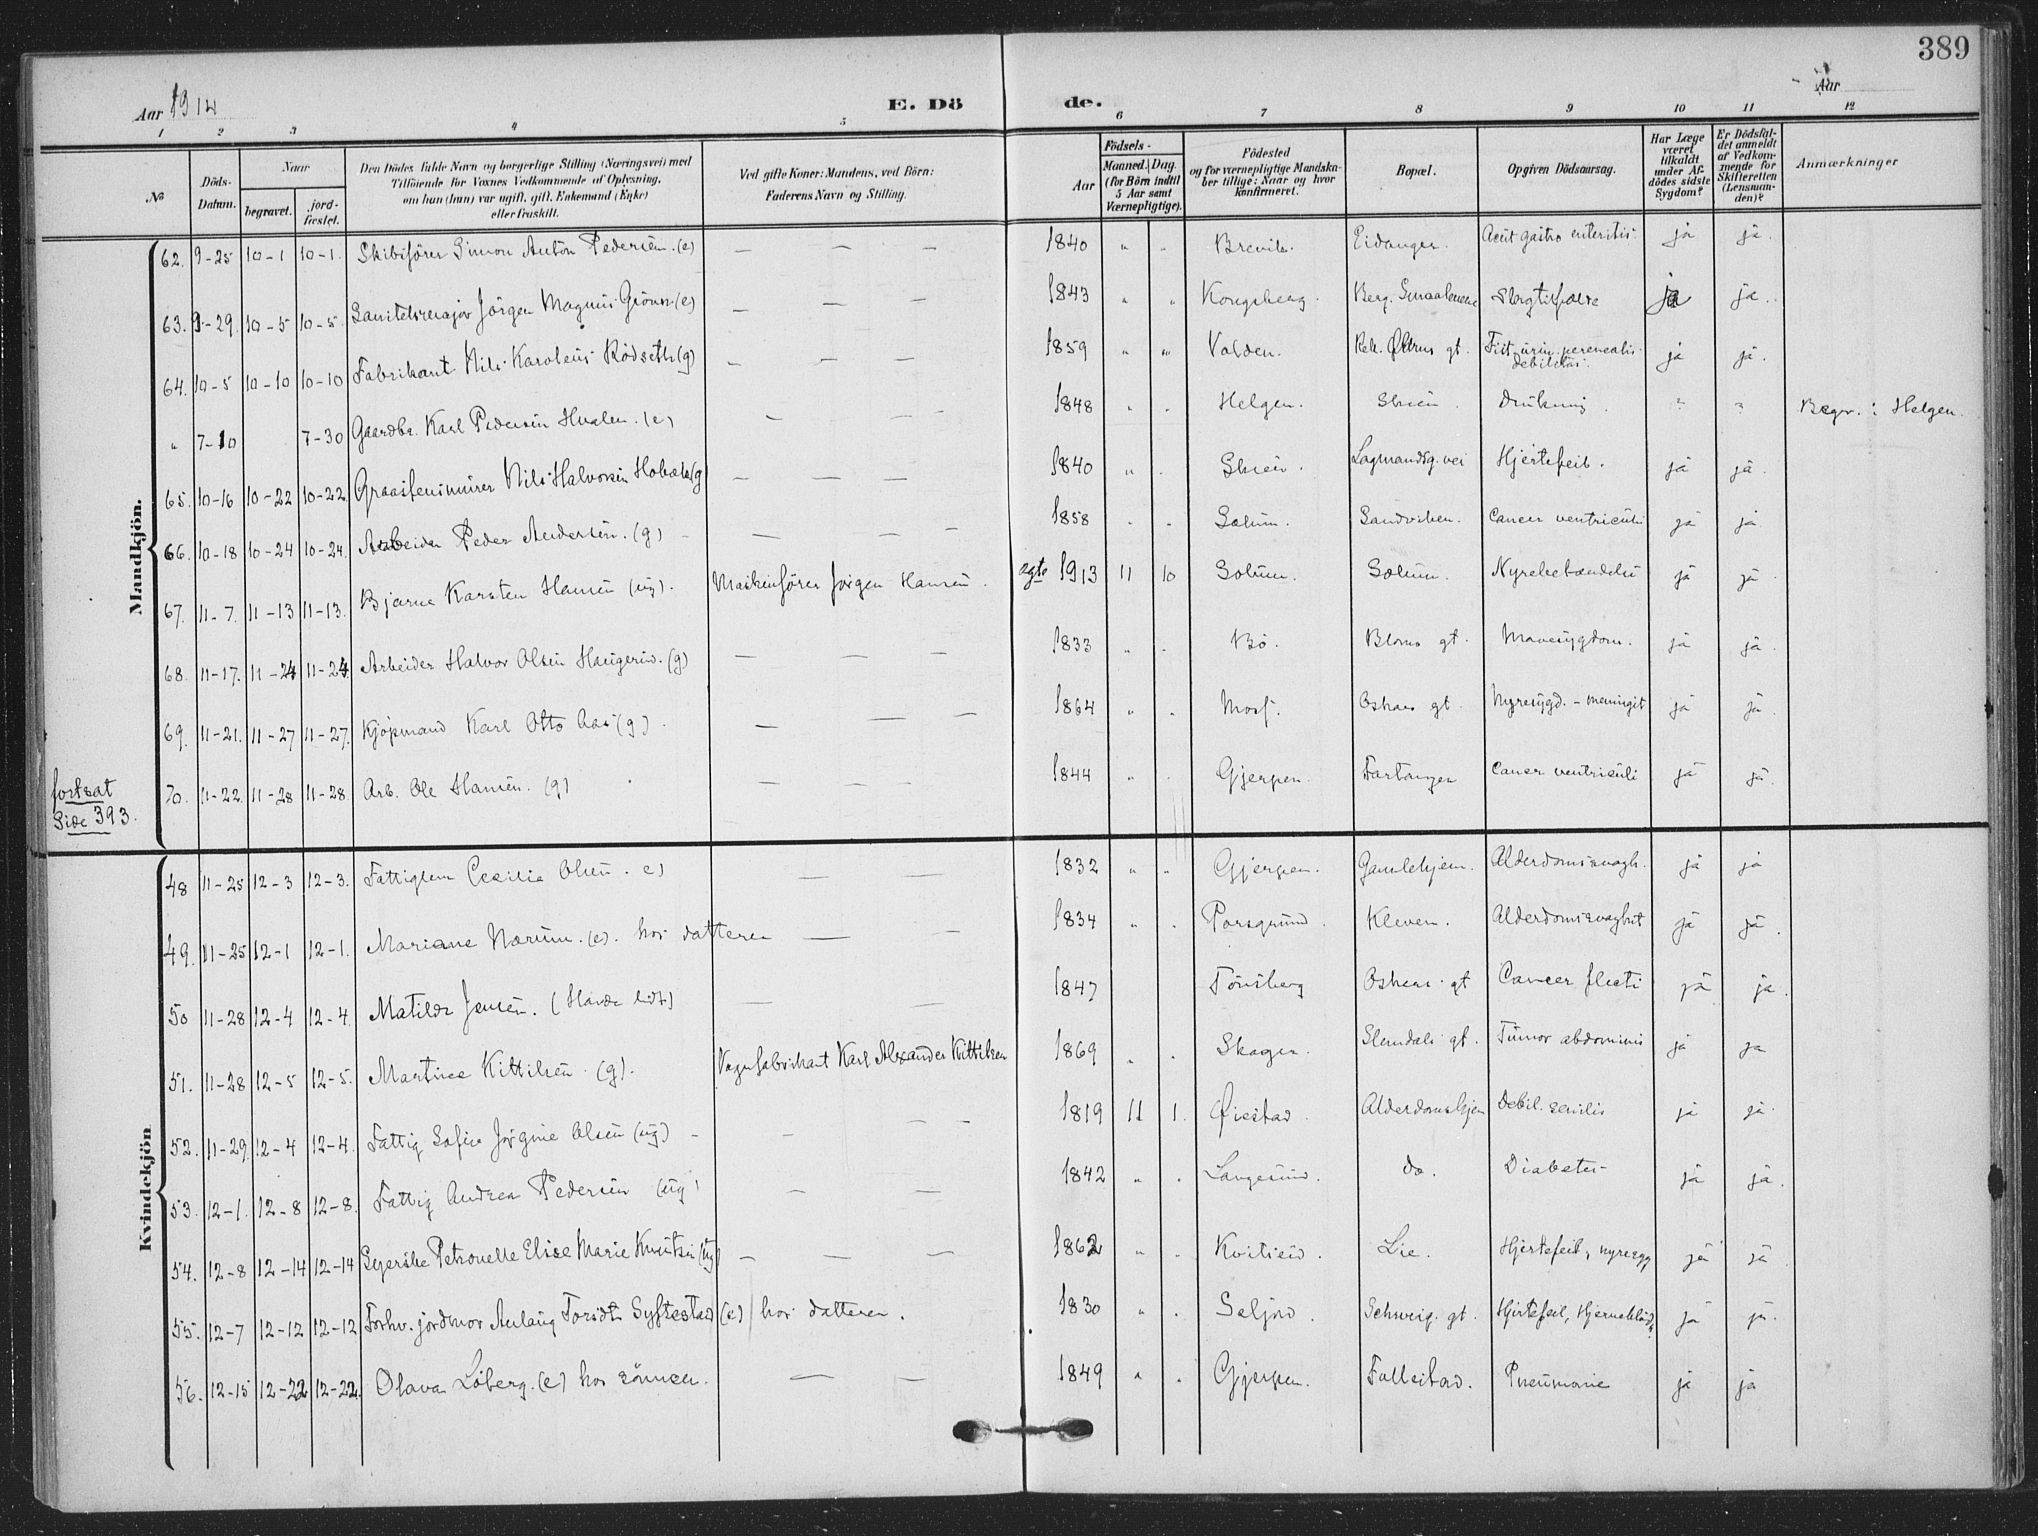 389
Aar 1914 E. Dö de. Aar
1 2 3 4 5 6 7 8 9 10 11 12
No Döds-Datum. Naar begravet. jord-fæstet. Den Dödes fulde Navn og borgerlige Stilling (Næringsvei) med Tilföiende for Voxnes Vedkommende af Oplysning, om han (hun) var ugift, gift, Enkemand (Enke) eller fraskilt. Ved gifte Koner: Mandens, ved Börn: Faderens Navn og Stilling. Aar Födsels- Maaned. Dag. (for Börn indtil 5 Aar samt Værnepligtige). Födested og for værnepligtige Mandskaber tillige: Naar og hvor konfirmeret. Bopæl. Opgiven Dödsaarsag. Har Læge været tilkaldt under Afdödes sidste Sygdom? Er Dödsfaldet anmeldt af Vedkommende for Skifteretten (Lensmanden)? Anmærkninger
Mandkjön.
62. 9-25 10-1 10-1. Skibsfører Simon Anton Pedersen. (e) — — — 1840 " " Brevik. Eidanger. Acut gastro enteritis. ja ja.
63. 9-29. 10-5 10-5. Sanitetsmajor Jörgen Magnus Grönn (e) — — — 1843 " " Kongsberg. Berg. Smaalenene Slagtilfælde ja ja.
64. 10-5 10-10 10-10 Fabrikant Nils Karolius Rødseth (g) — — — 1859 " " Volden. gt. Fist. urin. perenealis debilitas. ja ja.
" 7-10 7-30 Gaardbr. Karl Pedersen Hvalen. (e) — — — 1848 " " Helgen. Skien. Drukning. " " Begr. i Helgen.
65. 10-16 10-22 10-22 Graastensmurer Nils Halvorsen (g) — — — 1840 " " Skien. Lagmandsg. vei Hjertefeil. ja ja.
66. 10-18 10-24 10-24. Arbeider Peder Andersen. (g) — — — 1858 " " Solum. Sandviken. Cancer ventriculi ja ja
67. 11-7. 11-13 11-13. Bjarne Karsten Hansen (ug). Maskinfører Jørgen Hansen. ægte 1913 11 10 Solum. Solum. Nyrebetændelse ja ja.
68. 11-17. 11-24 11-24. Arbeider Halvor Olsen (g) — — — 1833 " " Bø. Bloms gt. Mavesygdom. ja ja.
69. 11-21. 11-27 11-27. Kjøpmand Karl Otto Aas (g). — — — 1864 " " Moss. Oskars gt. Nyresygd. - meningit ja ja
70. 11-22. 11-28 11-28. Arb. Ole Hansen. (g) — — — 1844 " " Gjerpen. Fartangen Cancer ventriculi ja ja.
fortsat
Side 393.
Kvindekjön
48 11-25 12-3 12-3. Fattiglem Cecilie Olsen. e) — — — 1832 " " Gjerpen. Gamlehjem. Alderdomssvagh. ja ja
49. 11-25 12-1 12-1. Mariane Nærum. (e). hos datteren — — 1834 " . Porsgrund. Kleven. Alderdomssvaghet ja ja.
50 11-28 12-4 12-4. Matilde Jensen. — — 1847 Tönsberg Oskars gt Cancer ja ja.
51. 11-28 12-5 12-5. Martine Kittilsen. (g). Vognfabrikant Karl Alexander Kittilsen 1869 " . Skagen. gt. Tumor abdominis ja ja
52. 11-29. 12-4 12-4. Fattig Sofie Jørgine Olsen (ug) — — — — 1819 11 1. Øiestad. Alderdomshjem Debil. senilis ja ja.
53. 12-1. 12-8 12-8. Fattig Andrea Pedersen (ug) — — — 1842 " . Langesund do. Diabetes ja ja.
54. 12-8 12-14 12-14 Syerske Petronelle Elise Marie Knutsen (ug) — — — 1862 " . Kvitseid. Lie. Hjertefeil, nyresyg ja ja
55. 12-7 12-12 12-12 Forhv. jordmor Aulaug Toridt Syftestad (e) hos datteren. 1830 " . Seljord. Schweig. gt. Hjertefeil, Hjerneblødn. ja ja.
56. 12-15 12-22 12-22. Olava Löberg. (e) hos sönnen. — — 1849 " . Gjerpen. Follestad. Pneumonie ja ja